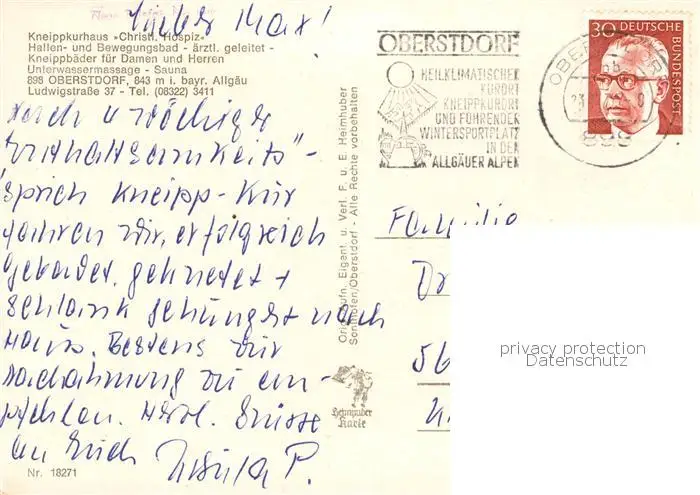 Lieber Max!
Kneippkurhaus »Christl. Hospiz«
Hallen- und Bewegungsbad - ärztl. geleitet -
Kneippbäder für Damen und Herren
Unterwassermassage - Sauna
898 OBERSTDORF, 843 m i. bayr. Allgäu
Ludwigstraße 37 - Tel. (08322) 3411
Nach 4 wöchiger
"Enthaltsamkeits"-
sprich Kneipp-Kur
fahren wir, erfolgreich
gebadet, geknetet +
schlank gehungert nach
Haus. Bestens zur
Nachahmung zu em-
pfehlen. Herzl. Grüsse
an Euch Ursula P.
Nr. 18271
Originalaufn. Eigent. u. Verl. F. u. E. Heimhuber
Sonthofen/Oberstdorf - Alle Rechte vorbehalten
Heimhuber
Karte
OBERSTDORF
HEILKLIMATISCHER
KURORT
KNEIPPKURORT
UND FÜHRENDER
WINTERSPORTPLATZ
IN DEN
ALLGÄUER ALPEN
30 DEUTSCHE
BUNDESPOST
898
Familie
Dr
56
privacy protection
Datenschutz